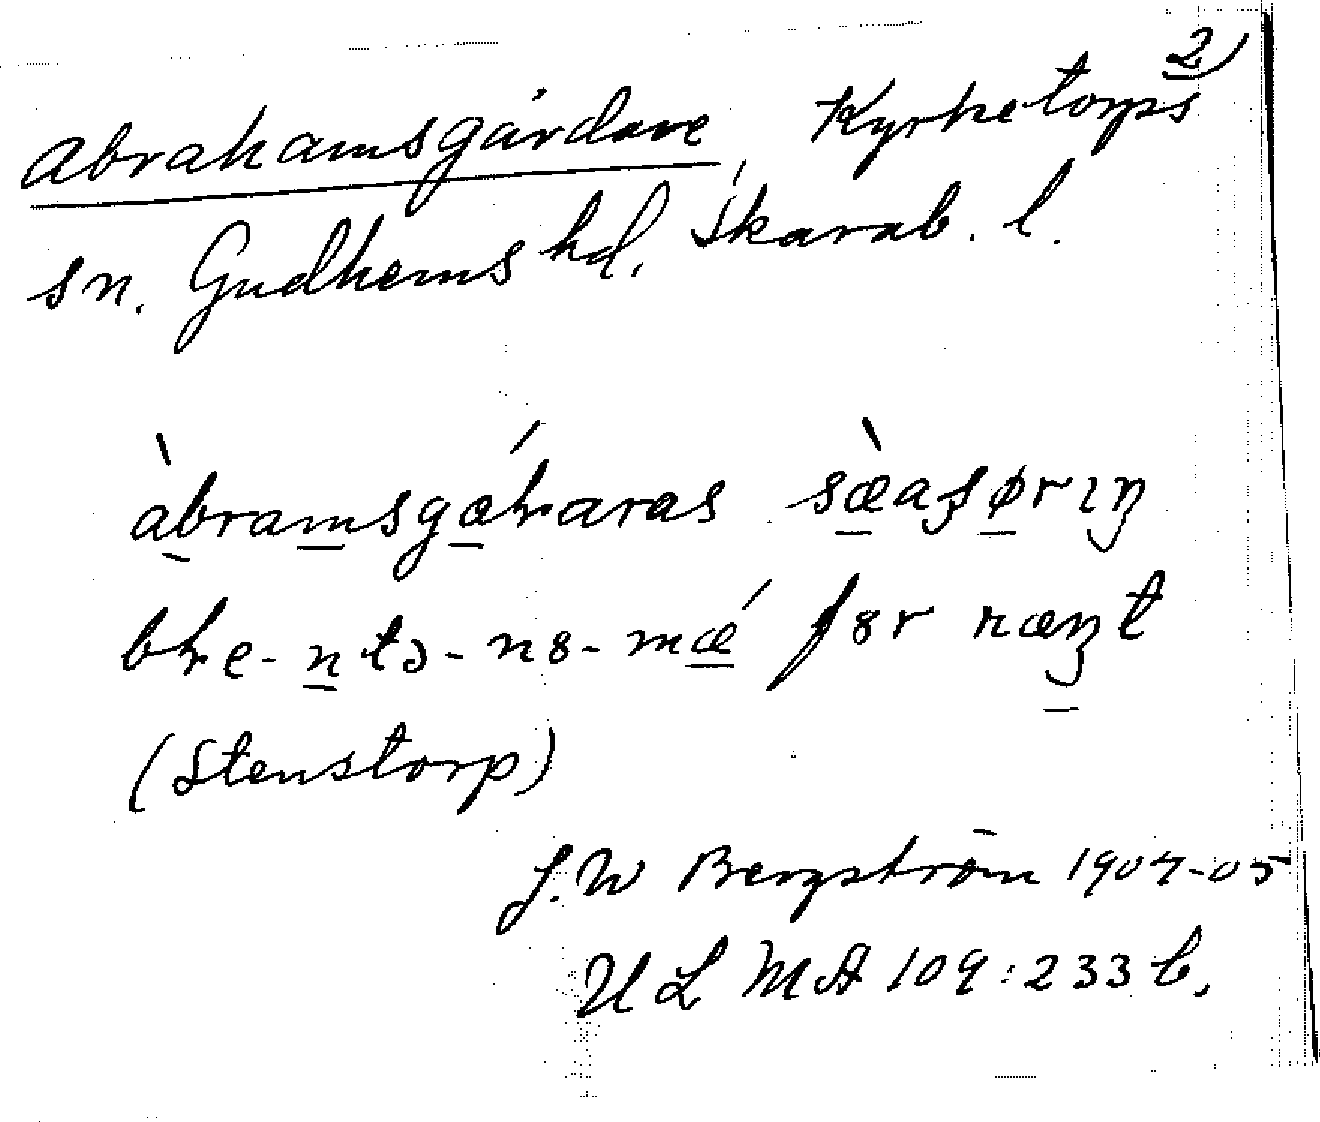 2)
Abrahamsgårdare, Kyrketorps
sn. Gudhems hd. Skarab. l.
àbramsgæɦaras sæaʂørıŋ
bɦe-ntɔ-n8-mǽ f8r næŋt
(Stenstorp)
J. W Bergström 1904-05
ULMA 109:233 b.